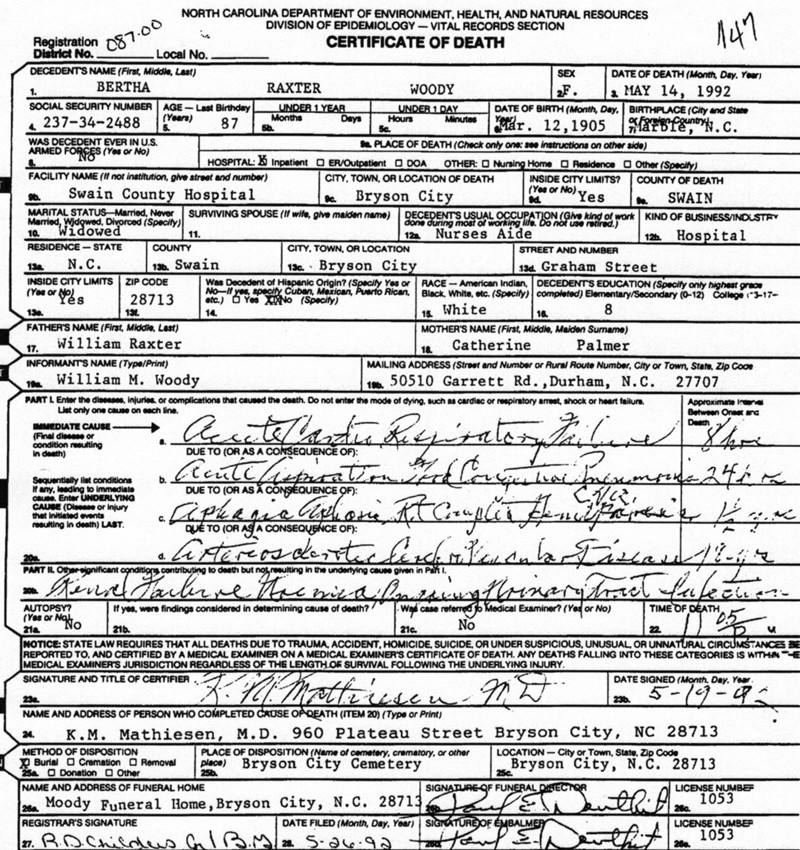 NORTH CAROLINA DEPARTMENT OF ENVIRONMENT, HEALTH, AND NATURAL RESOURCES
DIVISION OF EPIDEMIOLOGY — VITAL RECORDS SECTION
CERTIFICATE OF DEATH
147
Registration District No. 087-00 Local No.
DECEDENT'S NAME (First, Middle, Last) SEX DATE OF DEATH (Month, Day, Year)
1. BERTHA RAXTER WOODY 2. F. 3. MAY 14, 1992
SOCIAL SECURITY NUMBER AGE — Last Birthday (Years) UNDER 1 YEAR UNDER 1 DAY DATE OF BIRTH (Month, Day, Year) BIRTHPLACE (City and State or Foreign Country)
4. 237-34-2488 5. 87 5b. Months Days 5c. Hours Minutes 6. Mar. 12,1905 7. Marble, N.C.
WAS DECEDENT EVER IN U.S. ARMED FORCES? (Yes or No) 9a. PLACE OF DEATH (Check only one: see instructions on other side)
8. No HOSPITAL: ☒ Inpatient ☐ ER/Outpatient ☐ DOA OTHER: ☐ Nursing Home ☐ Residence ☐ Other (Specify)
FACILITY NAME (If not institution, give street and number) CITY, TOWN, OR LOCATION OF DEATH INSIDE CITY LIMITS? (Yes or No) COUNTY OF DEATH
9b. Swain County Hospital 9c. Bryson City 9d. Yes 9e. SWAIN
MARITAL STATUS—Married, Never Married, Widowed, Divorced (Specify) SURVIVING SPOUSE (If wife, give maiden name) DECEDENT'S USUAL OCCUPATION (Give kind of work done during most of working life. Do not use retired.) KIND OF BUSINESS/INDUSTRY
10. Widowed 11. 12a. Nurses Aide 12b. Hospital
RESIDENCE - STATE COUNTY CITY, TOWN, OR LOCATION STREET AND NUMBER
13a. N.C. 13b. Swain 13c. Bryson City 13d. Graham Street
INSIDE CITY LIMITS (Yes or No) ZIP CODE Was Decedent of Hispanic Origin? (Specify Yes or No—If yes, specify Cuban, Mexican, Puerto Rican, etc.) ☐ Yes ☒ No (Specify) RACE - American Indian, Black, White, etc. (Specify) DECEDENT'S EDUCATION (Specify only highest grade completed) Elementary/Secondary (0-12) College
13e. Yes 13f. 28713 14. 15. White 16. 8
FATHER'S NAME (First, Middle, Last) MOTHER'S NAME (First, Middle, Maiden Surname)
17. William Raxter 18. Catherine Palmer
INFORMANT'S NAME (Type/Print) MAILING ADDRESS (Street and Number or Rural Route Number, City or Town, State, Zip Code
19a. William M. Woody 19b. 50510 Garrett Rd.,Durham, N.C. 27707
PART I. Enter the diseases, injuries, or complications that caused the death. Do not enter the mode of dying, such as cardiac or respiratory arrest, shock or heart failure. List only one cause on each line. Approximate Interval Between Onset and Death
IMMEDIATE CAUSE (Final disease or condition resulting in death) a. Acute Cardio Respiratory Failure 8 hrs
DUE TO (OR AS A CONSEQUENCE OF):
Sequentially list conditions if any, leading to immediate cause. Enter UNDERLYING CAUSE (Disease or injury that initiated events resulting in death) LAST. b. Acute Aspiration Pneumonia 24 hrs
DUE TO (OR AS A CONSEQUENCE OF):
c. Aphagia Aphasia Rt
DUE TO (OR AS A CONSEQUENCE OF):
20a. d. Arteriosclerotic Disease
PART II. Other significant conditions contributing to death but not resulting in the underlying cause given in Part I.
20b. Renal Failure Tract Infection
AUTOPSY? (Yes or No) If yes, were findings considered in determining cause of death? Was case referred to Medical Examiner? (Yes or No) TIME OF DEATH
21a. No 21b. 21c. No 22. 11 05 P M.
NOTICE: STATE LAW REQUIRES THAT ALL DEATHS DUE TO TRAUMA, ACCIDENT, HOMICIDE, SUICIDE, OR UNDER SUSPICIOUS, UNUSUAL, OR UNNATURAL CIRCUMSTANCES BE
REPORTED TO, AND CERTIFIED BY A MEDICAL EXAMINER ON A MEDICAL EXAMINER'S CERTIFICATE OF DEATH. ANY DEATHS FALLING INTO THESE CATEGORIES IS WITHIN THE
MEDICAL EXAMINER'S JURISDICTION REGARDLESS OF THE LENGTH OF SURVIVAL FOLLOWING THE UNDERLYING INJURY.
SIGNATURE AND TITLE OF CERTIFIER DATE SIGNED (Month, Day, Year
23a. K. M. Mathiesen MD 23b. 5-19-92
NAME AND ADDRESS OF PERSON WHO COMPLETED CAUSE OF DEATH (ITEM 20) (Type or Print)
24. K.M. Mathiesen, M.D. 960 Plateau Street Bryson City, NC 28713
METHOD OF DISPOSITION PLACE OF DISPOSITION (Name of cemetery, crematory, or other place) LOCATION — City or Town, State, Zip Code
☒ Burial ☐ Cremation ☐ Removal Bryson City Cemetery Bryson City, N.C. 28713
25a. ☐ Donation ☐ Other 25b. 25c.
NAME AND ADDRESS OF FUNERAL HOME SIGNATURE OF FUNERAL DIRECTOR LICENSE NUMBER
26a. Moody Funeral Home,Bryson City, N.C. 28713 26b. 26c. 1053
REGISTRAR'S SIGNATURE DATE FILED (Month, Day, Year) SIGNATURE OF EMBALMER LICENSE NUMBER
27. R.D. Childers 28. 5-26-92 26d. 26e. 1053